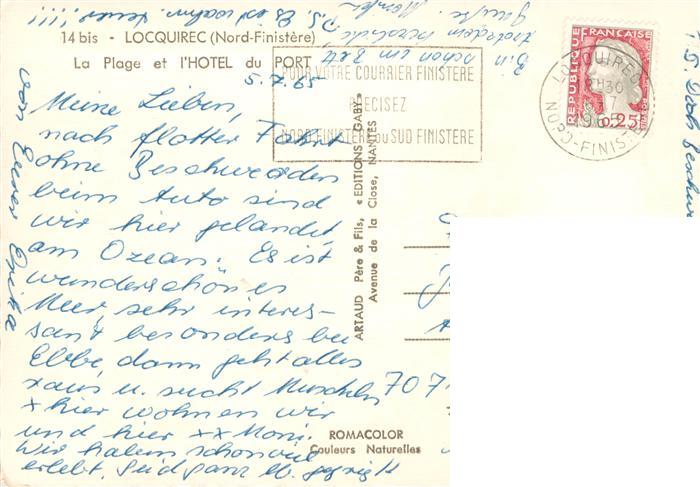 14 bis - LOCQUIREC (Nord-Finistère)
La Plage et l'HOTEL du PORT
5.7.65
Meine Lieben,
nach flotter Fahrt
ohne Beschwerden
beim Auto sind
wir hier gelandet,
am Ozean. Es ist
wunderschönes
Meer, sehr interes-
sant besonders bei
Ebbe, dann geht alles
raus u. sucht Muscheln
x hier wohnen wir
und hier xx Moni.
Wir haben schon viel
erlebt. Seid ganz lb. gegrüßt
von Eurer Erika
P.S. Es ist
Bin schon im Bett
trotzdem
POUR VOTRE COURRIER FINISTERE
PRECISEZ
NORD FINISTERE OU SUD FINISTERE
LOCQUIREC
NORD-FINIST
REPUBLIQUE FRANÇAISE
0,25
P.S. Doch
ARTAUD Père & Fils, « EDITIONS GABY »
Avenue de la Close, NANTES
707
ROMACOLOR
Couleurs Naturelles